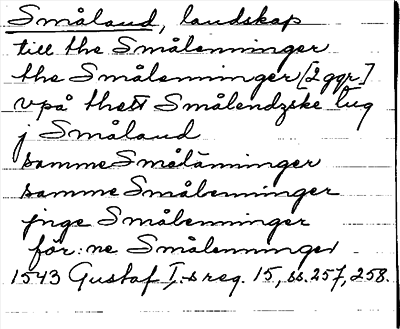 Småland, landskap
till the Smålenninger
the Smålenninger [2 ggr.]
vpå thett Smålendzske tug
j Småland
samme Smålänninger
samme Smålenninger
jnge Smålenninger
för:ne Smålenninger
1543 Gustaf I:s reg. 15, ss. 257, 258.